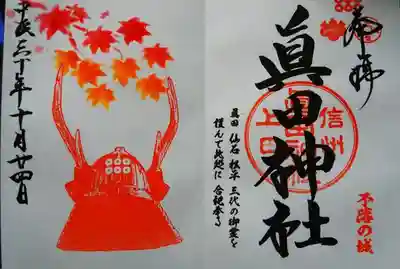 奉拝
眞田神社
信州
上田
不落の城
真田 仙石 松平 三代の御霊を
謹んで此処に 合祀奉る
平成三十年十月廿四日